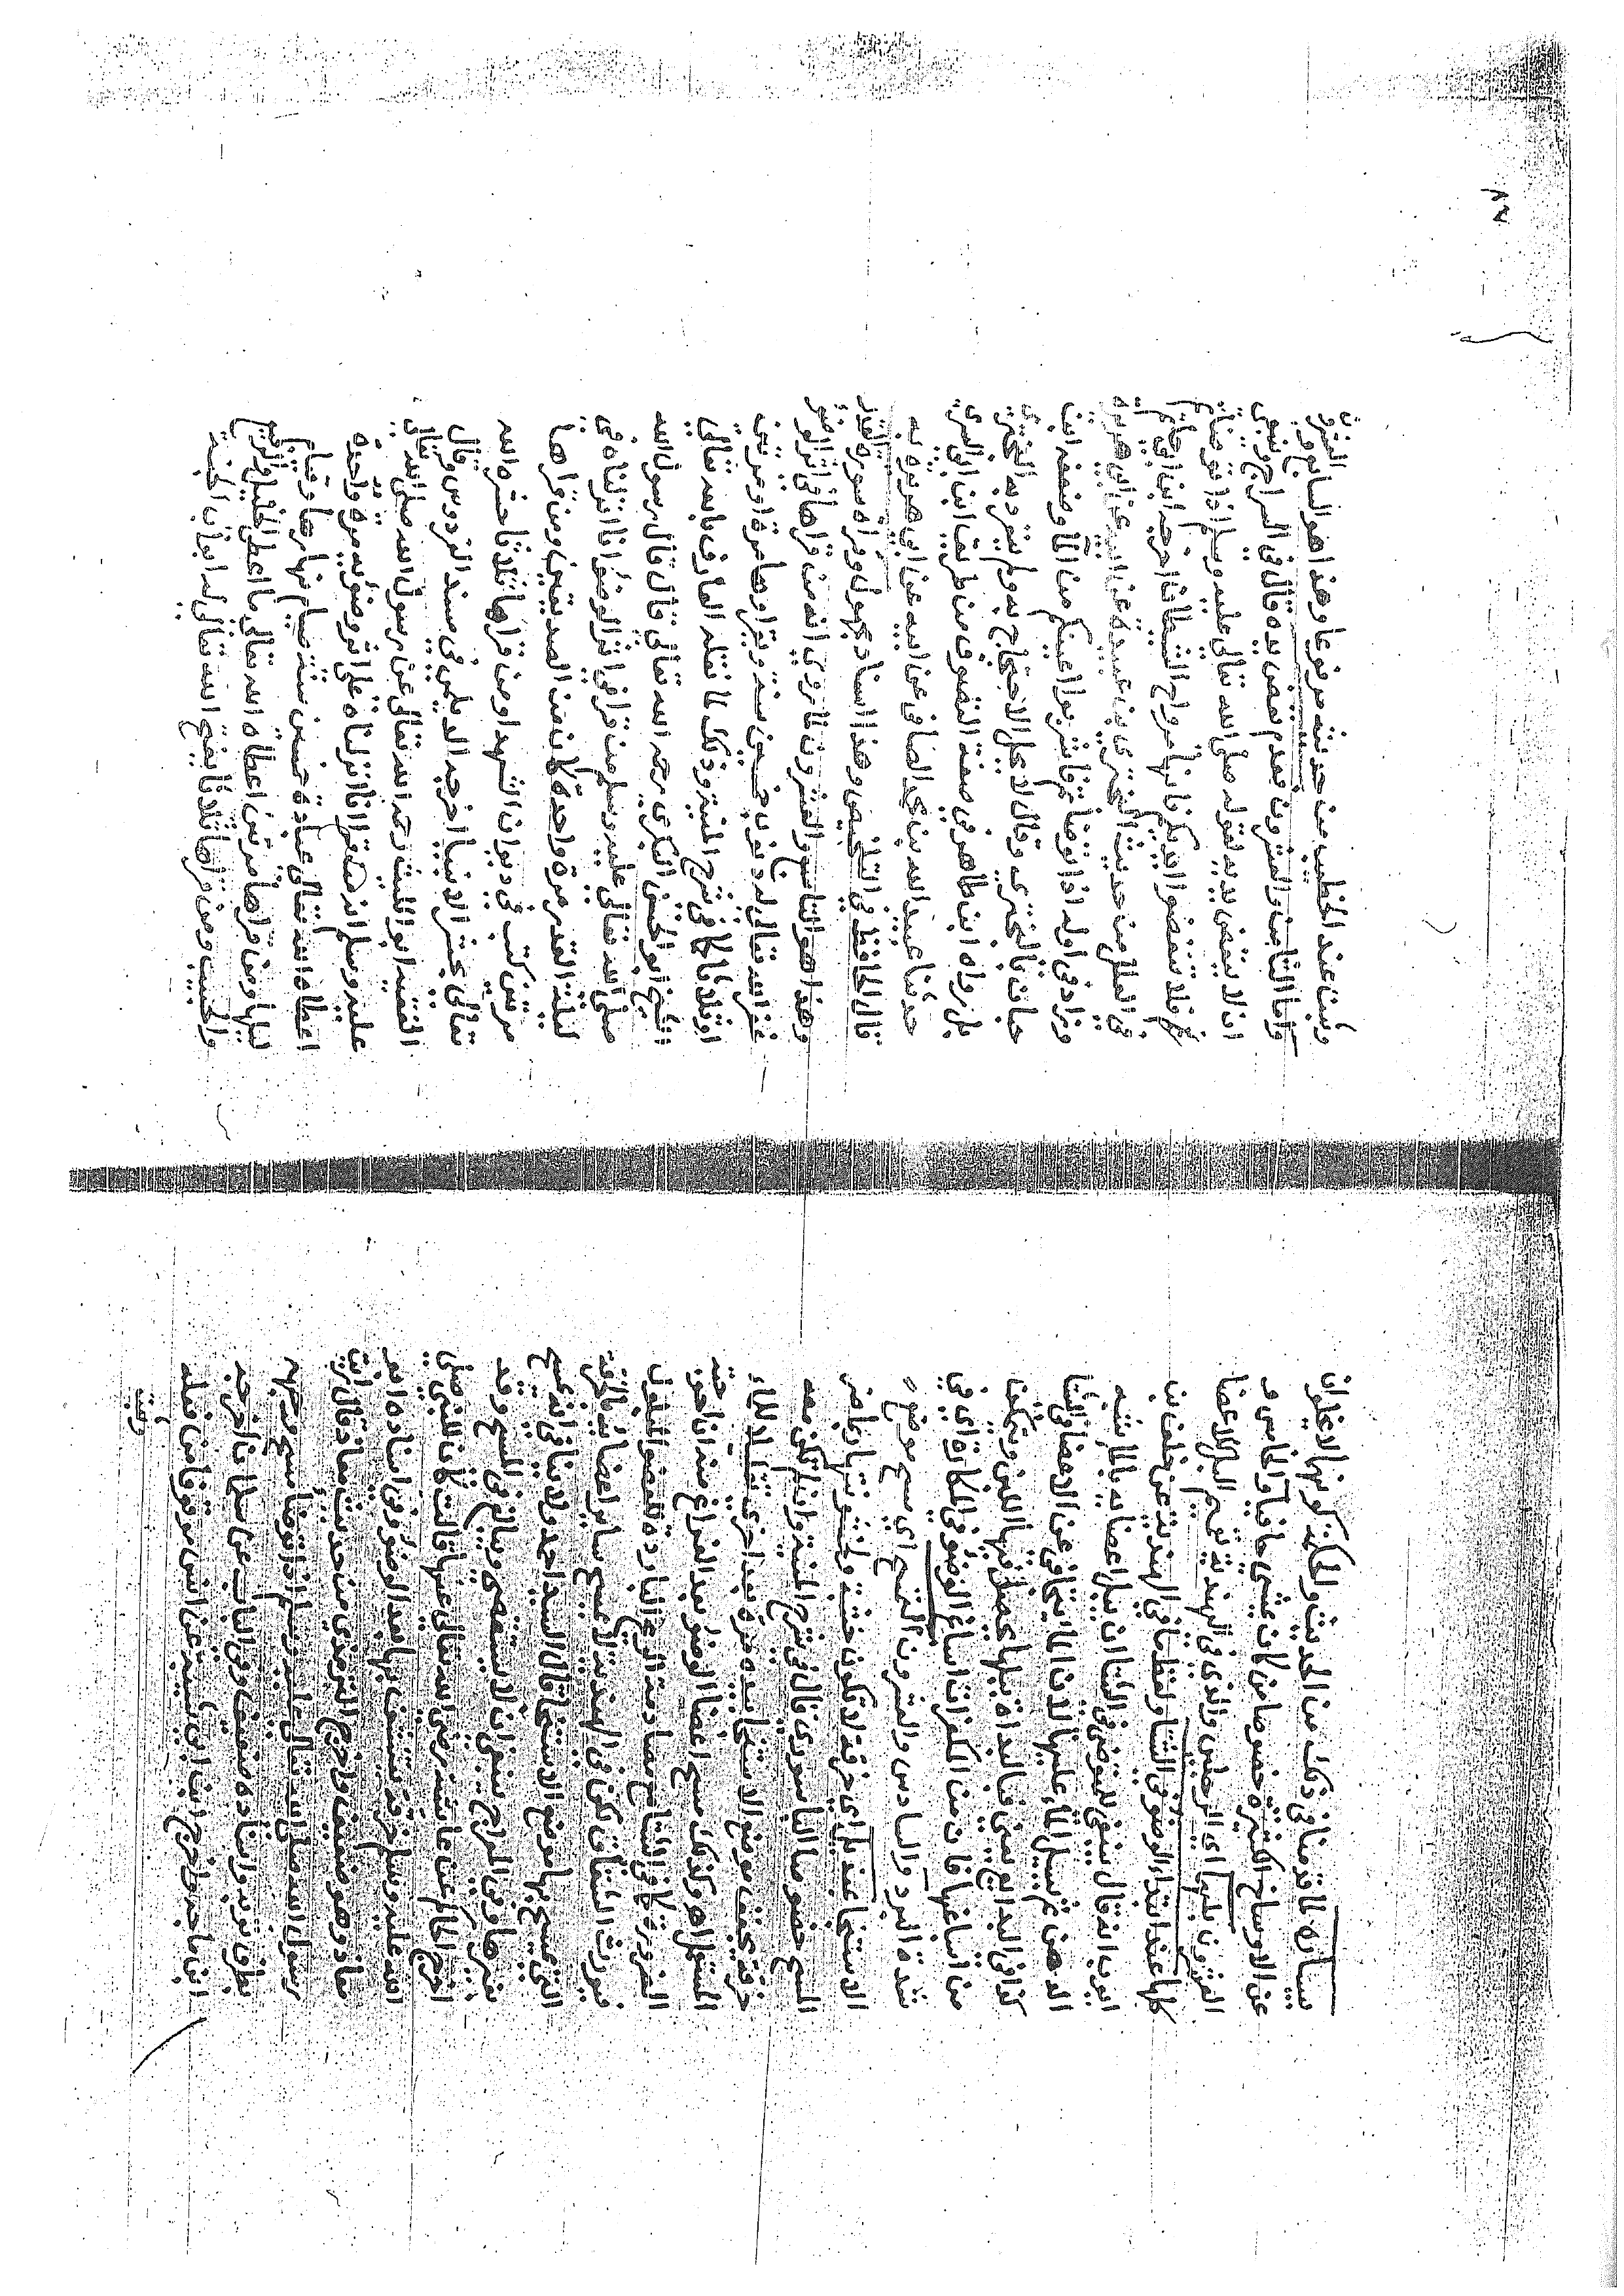 يساره لما قدمنا في ذلك من الحديث والحكمة كونها لا تخلوان
عن الاوساخ الكثيرة خصوصا من كان يمشي حافيا والخامس و
العشرون بلهما اي الرجلين والذي في الهندية يعم البل للاعضا
كلها عند ابتداء الوضوء في الشتا ولفظها في الهندية عن خلف بن
ايوب انه قال ينبغي للمتوضي في الشتا ان يبل اعضايه بالما شبه
الدهن ثم يسيل الماء عليها لان الما يتجافى عن الاعضا في الشتا
كذا في البدائع يعني فالبداءة ببلها يحصل فيها اللين ويتمكن
من اسباغها فان من الكفرات اسباغ الوضوء في المكاره اي في
شدة البرد والسادس والعشرون التمسح اي يمسح موضع
الاستنجا عنده اي خرقة لا تكون خشنة
المسح خصوصا الباسوري قال في شرح المنية وان لم تكن معه
خرقة يجفف موضع الاستنجا بيده مرة بعد اخرى تقليلا للماء
المستعمل اهـ وكذلك مسح اعضا الوضوء بعد الفراغ منه ان احتيج
لضرورة كما في الشتا مع مصادمة الريح الباردة للعضو المبلول
فيورث الشقاق لكن في الهندية لا يمسح ساير اعضايه بالخرقة
التي يمسح بها موضع الاستنجا قال السيد احمد ولا ينافي انه يمسح
بغيرها وفي المعراج ينبغي ان لا يستقصي ويبالغ في المسح وقد
اخرج الحاكم عن عائشة رضي الله تعالى عنها قالت كان للنبي صلى
الله عليه وسلم خرقة يتنشف بها بعد الوضوء وفي اسناده ابو
معاذ وهو ضعيف واخرج الترمذي من حديث معاذ قال رايت
رسول الله صلى الله تعالى عليه وسلم اذا توضا مسح وجهه
بطرف ثوبه واسناده ضعيف وفي الباب عن سلمان اخرجه
ابن ماجه واخرج ابن ابي شيبة عن انس موقوفا من فعله
وثبت
وثبت عند الخطيب من حديثه مرفوعا وهذا هو السابع والعشرون
واما الثامن والعشرون فعدم نفض يده قال في السراج وينبغي
ان لا ينفض يديه لقوله صلى الله تعالى عليه وسلم اذا توضاتم
فلا تنفضوا ايديكم فانها مراوح الشيطان اخرجه ابن ابي حاتم
في العلل من حديث البختري بن عبيد عن ابيه عن ابي هريرة
وزاد في اوله اذا توضاتم فاشربوا اعينكم من الما وضعفه ابن
حبان بالبختري وقال لا يحل الاحتجاج به ولم ينفرد به البختري
بل رواه ابن طاهر في صفة التصوف من طريق ابن ابي السري
حدثنا عبيد الله بن محمد الطائي عن ابيه عن ابي هريرة به
قال الحافظ في التلخيص وهذا اسناد مجهول وقراءة سورة القدر
وهذا هو التاسع والعشرون فما روي انه من قراها في اثر الوضوء
غفر الله تعالى له ذنوب خمسين سنة ويقراوها مرة او مرتين
او ثلاثا كما في شرح المنية وذلك لما نقله العارف بالله تعالى
الشيخ ابو الحسن البكري رحمه الله تعالى قال قال رسول الله
صلى الله تعالى عليه وسلم من قرا في اثر الوضوء انا انزلناه في
ليلة القدر مرة واحدة كان من الصديقين ومن قراها
مرتين كتب في ديوان الشهدا ومن قراها ثلاثا حشره الله
تعالى محشر الانبيا اخرجه الديلمي في مسند الفردوس وقال
الفقيه ابو الليث رحمه الله تعالى عن رسول الله صلى الله تعالى
عليه وسلم انه من قرا انا انزلناه على اثر وضوئه مرة واحدة
اعطاه الله تعالى عبادة خمسين سنة صيام نهارها وقيام
ليلها ومن قراها مرتين اعطاه الله تعالى ما اعطى الخليل والكليم
والحبيب ومن قراها ثلاثا يفتح الله تعالى له ابواب الجنة